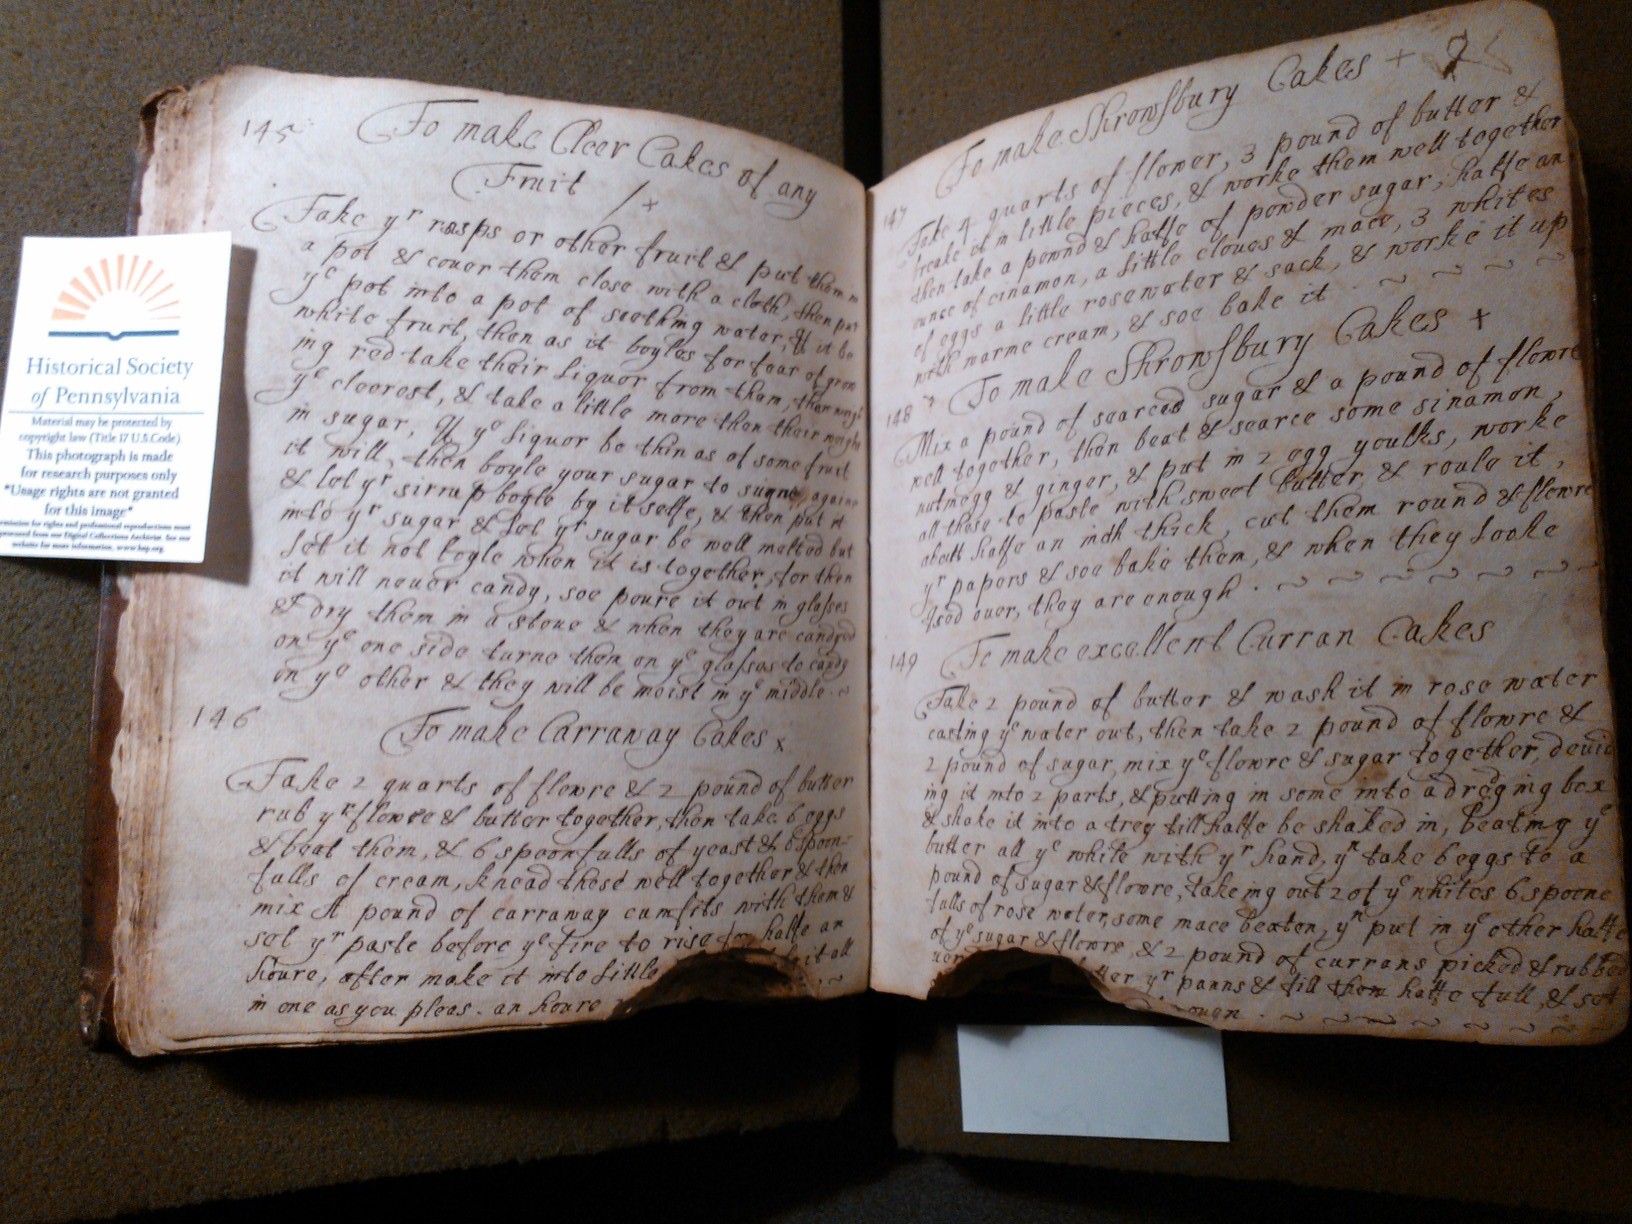 145
To make Cleer Cakes of any
Fruit /+
Take yr rasps or other fruit & put them in
a pot & couer them close with a cloth, then put
ye pot into a pot of seething water, If it be
white fruit, then as it boyles for fear of grow
ing red take their liquor from them, then weigh
ye cleerest, & take a little more then their weight
in sugar, If ye liquor be thin as of some fruit
it will, then boyle your sugar to againe
& let yr sirrup boyle by it selfe, & then put it
into yr sugar & let yr sugar be well melted but
let it not boyle when it is together, for then
it will neuer candy, soe poure it out in glasses
& dry them in a stoue & when they are candyed
on ye one side turne them on ye glasses to candy
on ye other & they will be moist in ye middle ~
146
To make Carraway Cakes x
Take 2 quarts of flowre & 2 pound of butter
rub yr flowre & butter together, then take 6 eggs
& beat them, & 6 spoonfulls of yeast & 6 spoon-
fulls of cream, knead these well together & then
mix A pound of carraway cumfits with them &
set yr paste before ye fire to rise for halfe an
houre, after make it into little it all
in one as you pleas. an houre
To make Shrowsbury Cakes +
147
Take 4 quarts of flower, 3 pound of butter &
breake it in little pieces, & worke them well together
then take a pownd & halfe of powder sugar, halfe an
ounce of cinamon, a little cloues & mace, 3 whites
of eggs a little rosewater & sack, & worke it up
with warme cream, & soe bake it ~ ~ ~ ~ ~
To make Shrowsbury Cakes +
148
Mix a pound of searced sugar & a pound of flowre
well together, then beat & searce some sinamon,
nutmegg & ginger, & put in 2 egg youlks, worke
all these to paste with sweet butter, & roule it,
aboutt halfe an inch thick, cut them round & flowre
yr papers & soe bake them, & when they looke
over, they are enough. ~ ~ ~ ~ ~ ~ ~
149
To make excellent Curran Cakes
Take 2 pound of butter & wash it in rose water
casting ye water out, then take 2 pound of flowre &
2 pound of sugar, mix ye flowre & sugar together, deuid
ing it into 2 parts, & putting in some into a dreging box
& shake it into a trey till halfe be shaked in, beating ye
butter all ye while with yr hand, yn take 6 eggs to a
pound of sugar & flowre, takeing out 2 of ye whites 6 spoone
fulls of rose water, some mace beaten, yn put in ye other halfe
of ye sugar & flowre, & 2 pound of currans picked & rubbed
yr panns & fill them halfe full, & set
~ ~ ~ ~ ~ ~ ~
Historical Society
of Pennsylvania
Material may be protected by
copyright law (Title 17 U.S.Code)
This photograph is made
for research purposes only
*Usage rights are not granted
for this image*
for rights and professional reproductions must
from our Digital Collections Archivist See our
website for more information, www.hsp.org